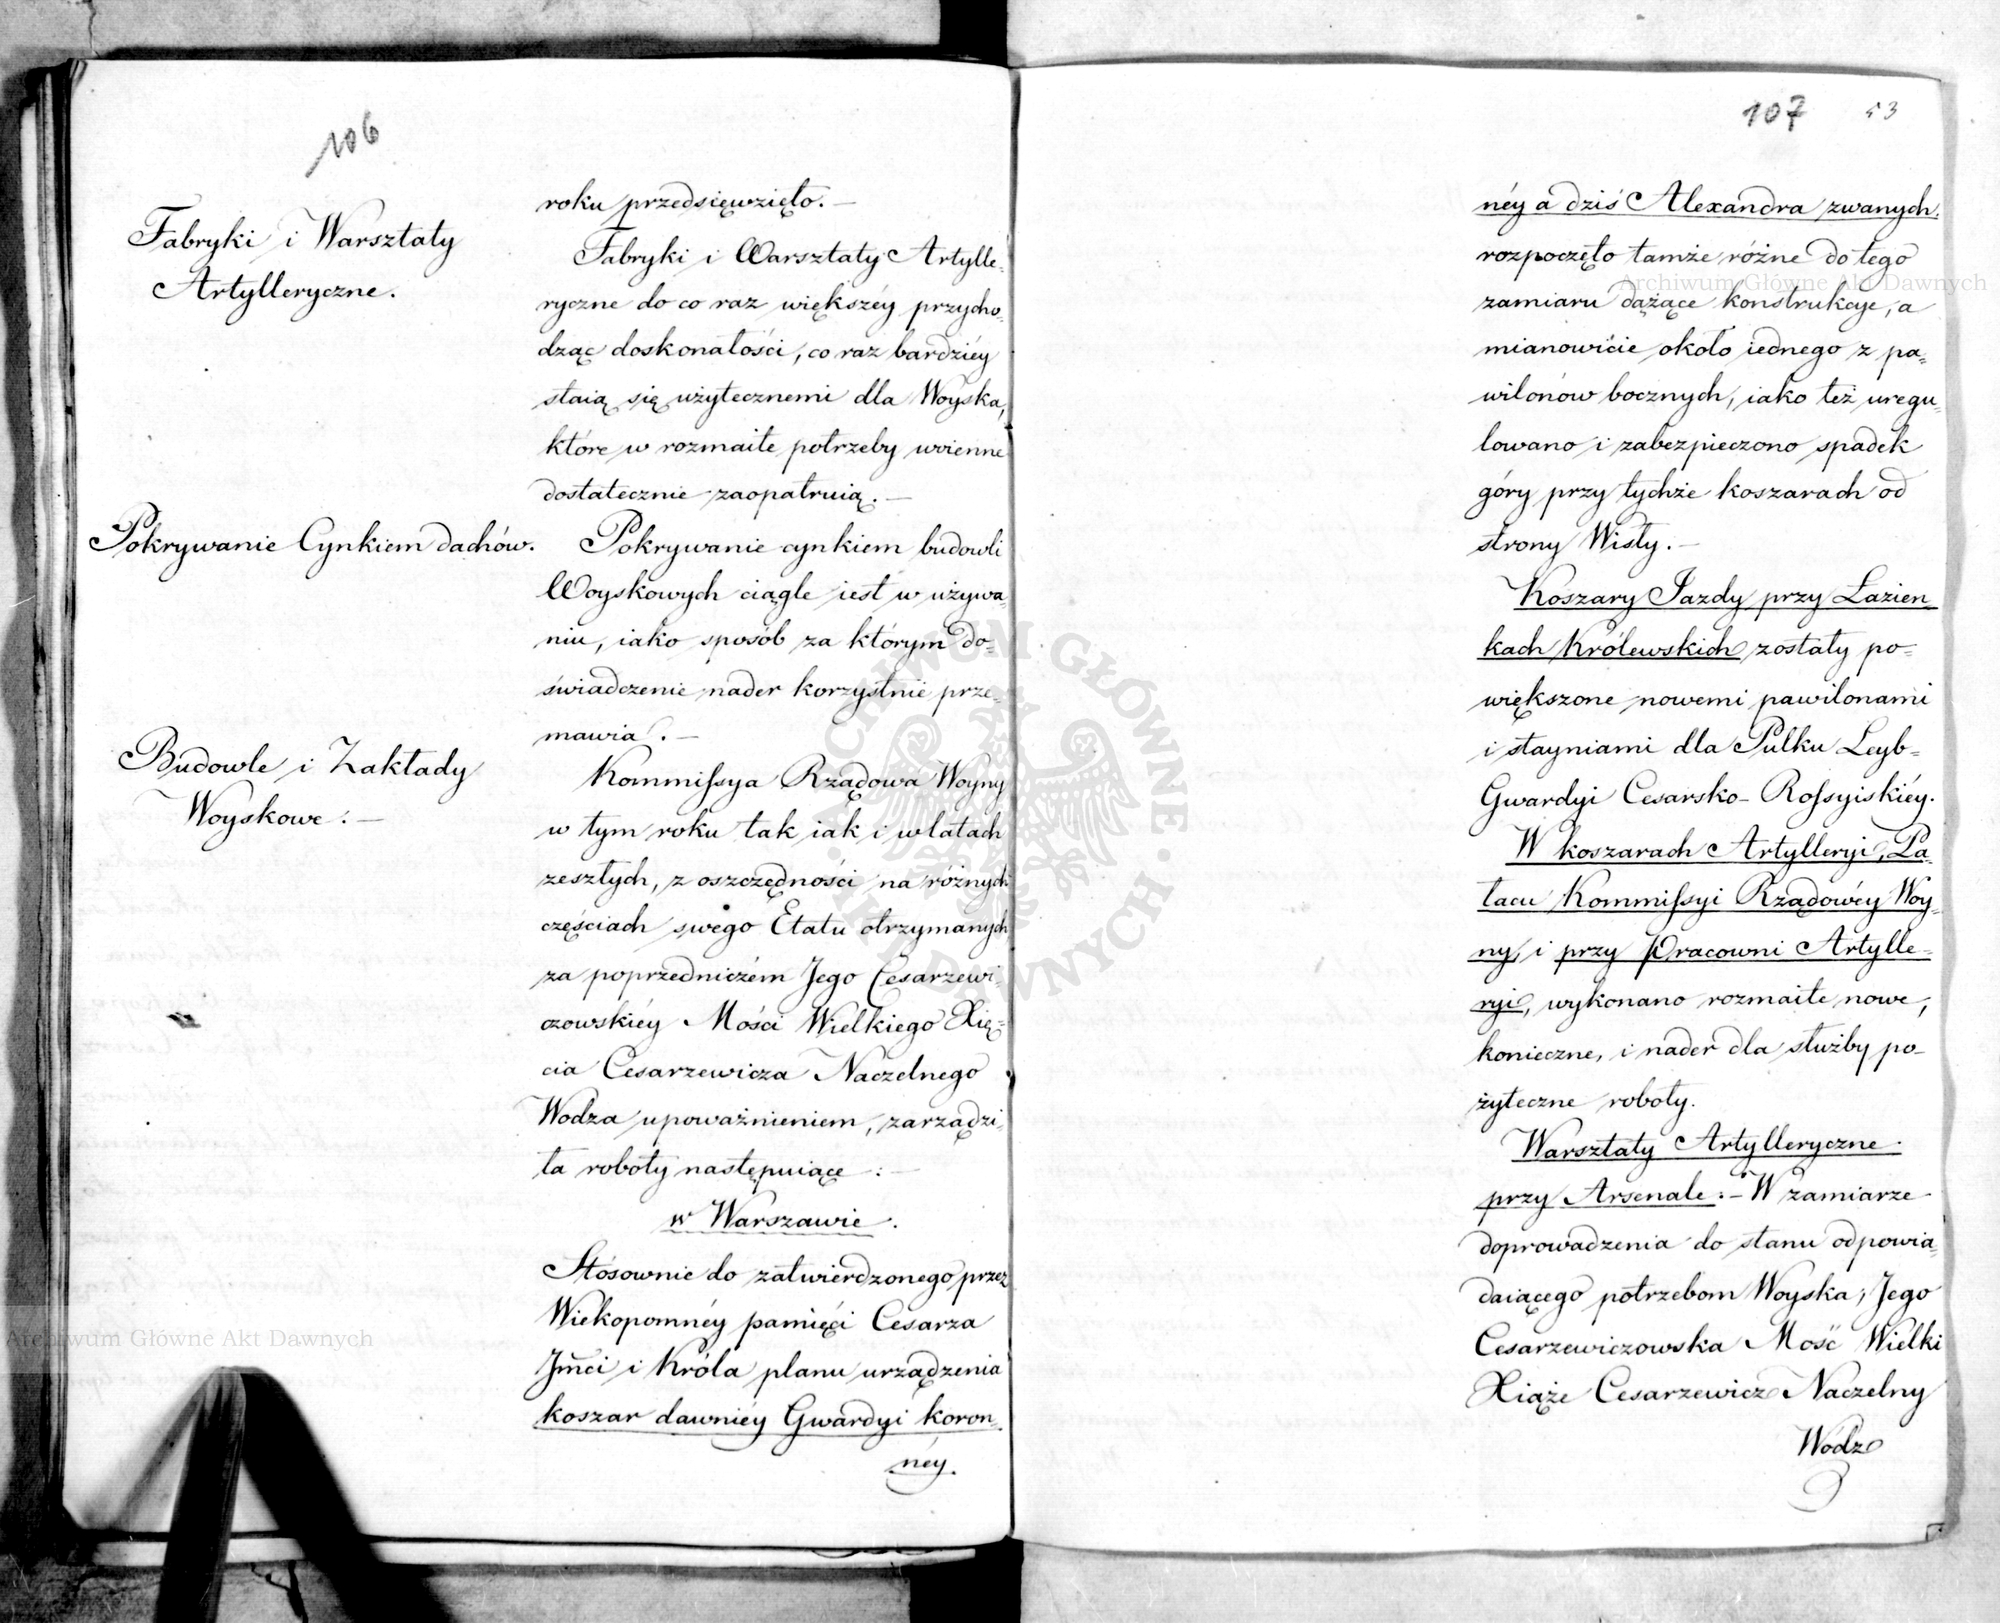 106
Fabryki i Warsztaty
Artylleryczne.
Pokrywanie Cynkiem dachów.
Budowle i Zakłady
Woyskowe. —
roku przedsięwzięto. —
Fabryki i Warsztaty Artylle-
ryczne do co raz większéy przycho-
dząc doskonałości, co raz bardziéy
staią się użytecznemi dla Woyska,
które w rozmaite potrzeby woienne
dostatecznie zaopatruią. —
Pokrywanie cynkiem budowli
Woyskowych ciągle iest w używa-
niu, iako sposób za którym do-
świadczenie nader korzystnie prze-
mawia. —
Kommissya Rządowa Woyny
w tym roku tak iak i w latach
zeszłych, z oszczędności na różnych
częściach swego Etatu otrzymanych
za poprzedniczém Jego Cesarzewi-
czowskiéy Mości Wielkiego Xię-
cia Cesarzewicza Naczelnego
Wodza upoważnieniem, zarządzi-
ła roboty następuiące: —
w Warszawie.
Stósownie do zatwierdzonego przez
Wiekopomnéy pamięci Cesarza
Jmći i Króla planu urządzenia
koszar dawniéy Gwardyi koron-
néy.
107 53
néy a dziś Alexandra zwanych.
rozpoczęto tamże różne do tego
zamiaru dążące konstrukcye, a
mianowicie około iednego z pa-
wilonów bocznych, iako też uregu-
lowano i zabezpieczono spadek
góry przy tychże koszarach od
strony Wisły. —
Koszary Jazdy przy Łazien-
kach Królewskich zostały po-
większone nowemi pawilonami
i stayniami dla Pułku Leyb-
Gwardyi Cesarsko-Rossyiskiéy.
W koszarach Artylleryi, Pa-
łacu Kommissyi Rządowéy Woy-
ny, i przy Pracowni Artylle-
ryi, wykonano rozmaite nowe,
konieczne, i nader dla służby po-
żyteczne roboty.
Warsztaty Artylleryczne
przy Arsenale: — W zamiarze
doprowadzenia do stanu odpowia-
daiącego potrzebom Woyska, Jego
Cesarzewiczowska Mość Wielki
Xiąże Cesarzewicz Naczelny
Wódz
Archiwum Główne Akt Dawnych
Archiwum Główne Akt Dawnych
ARCHIWUM GŁÓWNE · AKT DAWNYCH ·